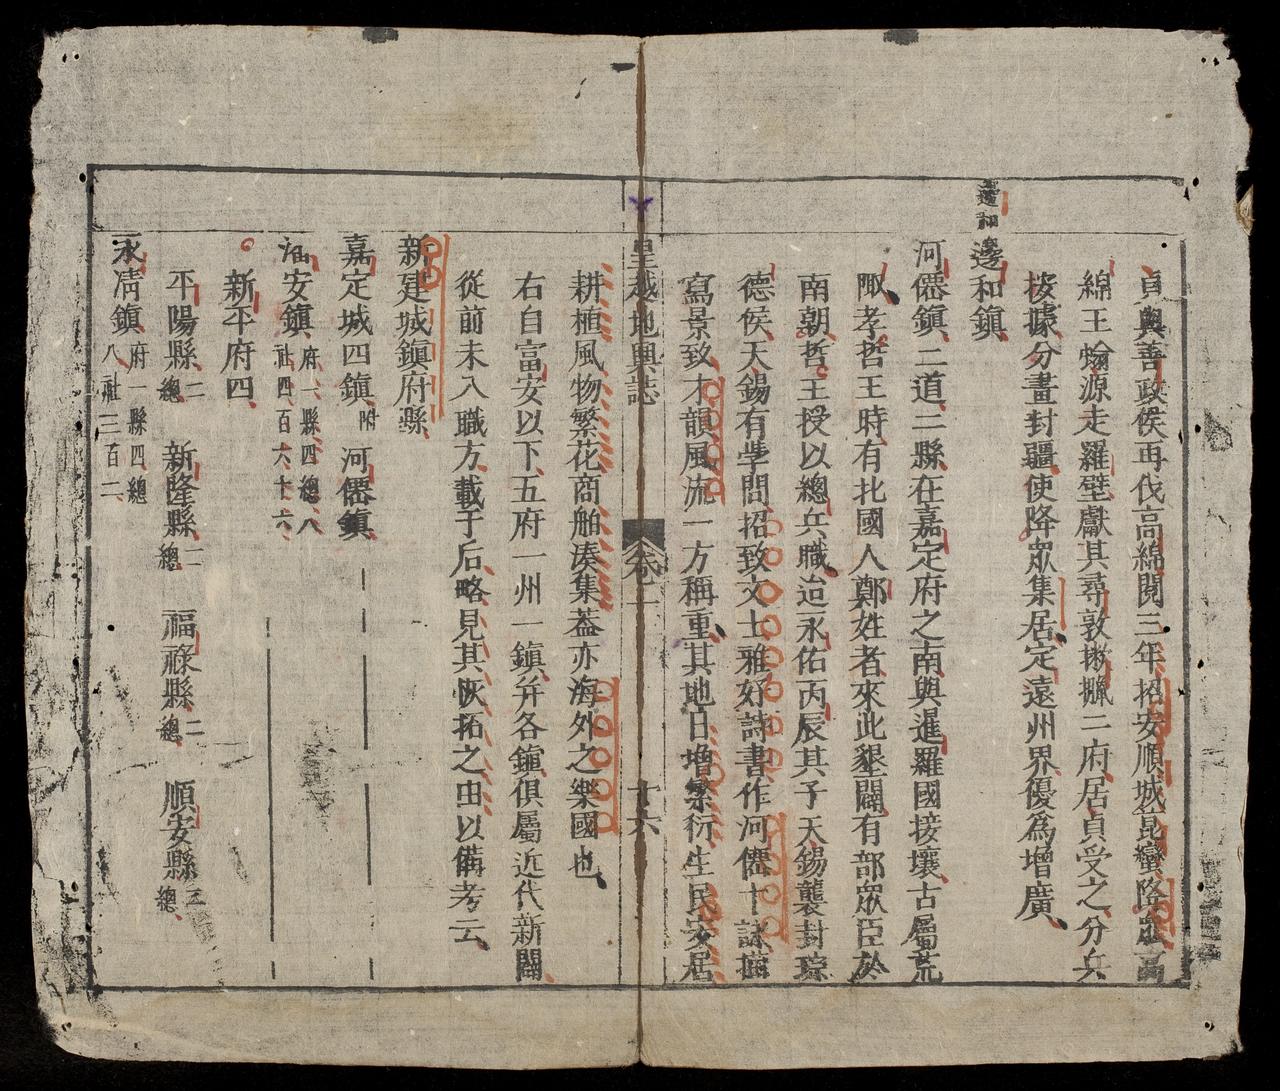 貞與善政侯再伐高綿閱三年招安順城昆蠻降眾高
綿王翰源走羅壁獻其尋敦㯲臘二府居貞受之分兵
按據分畫封疆使降眾集居定遠州界優為增廣
邊和
邊和鎮
河僊鎮二道二縣在嘉定府之南與暹羅國接壤古屬荒
陬孝哲王時有北國人鄭姓者來此墾闢有部眾臣於
南朝哲王授以總兵職迨永佑丙辰其子天錫襲封琮
德侯天錫有學問招致文士雅好詩書作河僊十詠描
寫景致才韻風流一方稱重其地日增繁衍生民安居
皇越地輿誌 卷一 十六
耕植風物繁花商舶湊集蓋亦海外之樂國也
右自富安以下五府一州一鎮并各鎮俱屬近代新闢
從前未入職方載于后略見其恢拓之由以備考云
新建城鎮府縣
嘉定城四鎮附 河僊鎮
安鎮府一縣四總八社四百六十六
新平府四
平陽縣二總 新隆縣二總 福祿縣二總 順安縣三總
永清鎮府一縣四總八社三百二